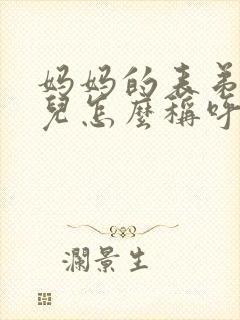 妈妈的表弟
兒怎麼稱呼
瀾景生